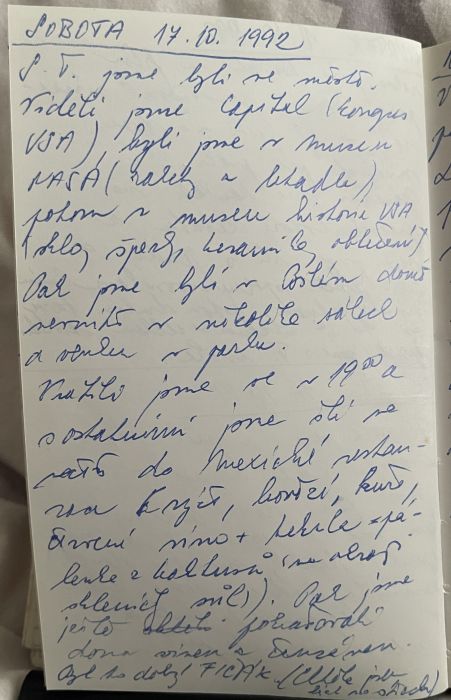 SOBOTA 17.10.1992
S. T. jsme byli ve městě.
Viděli jsme Capitol (kongres
USA), byli jsme v museu
NASA (rakety a letadla),
potom v museu historie USA
(sklo, šperky, keramika, oblečení)
Pak jsme byli v Bílém domě
uvnitř v několika sálech
a venku v parku.
Vrátili jsme se v 19⁰⁰ a
s ostatními jsme šli na
do mexické restau-
race rýže, hovězí, kuře,
červené víno + tekila = pá-
lenka z kaktusů (na okraji
sklenice sůl). Pak jsme
ještě pokračovali
doma vínem a
Byl to dobrý FICÁK.